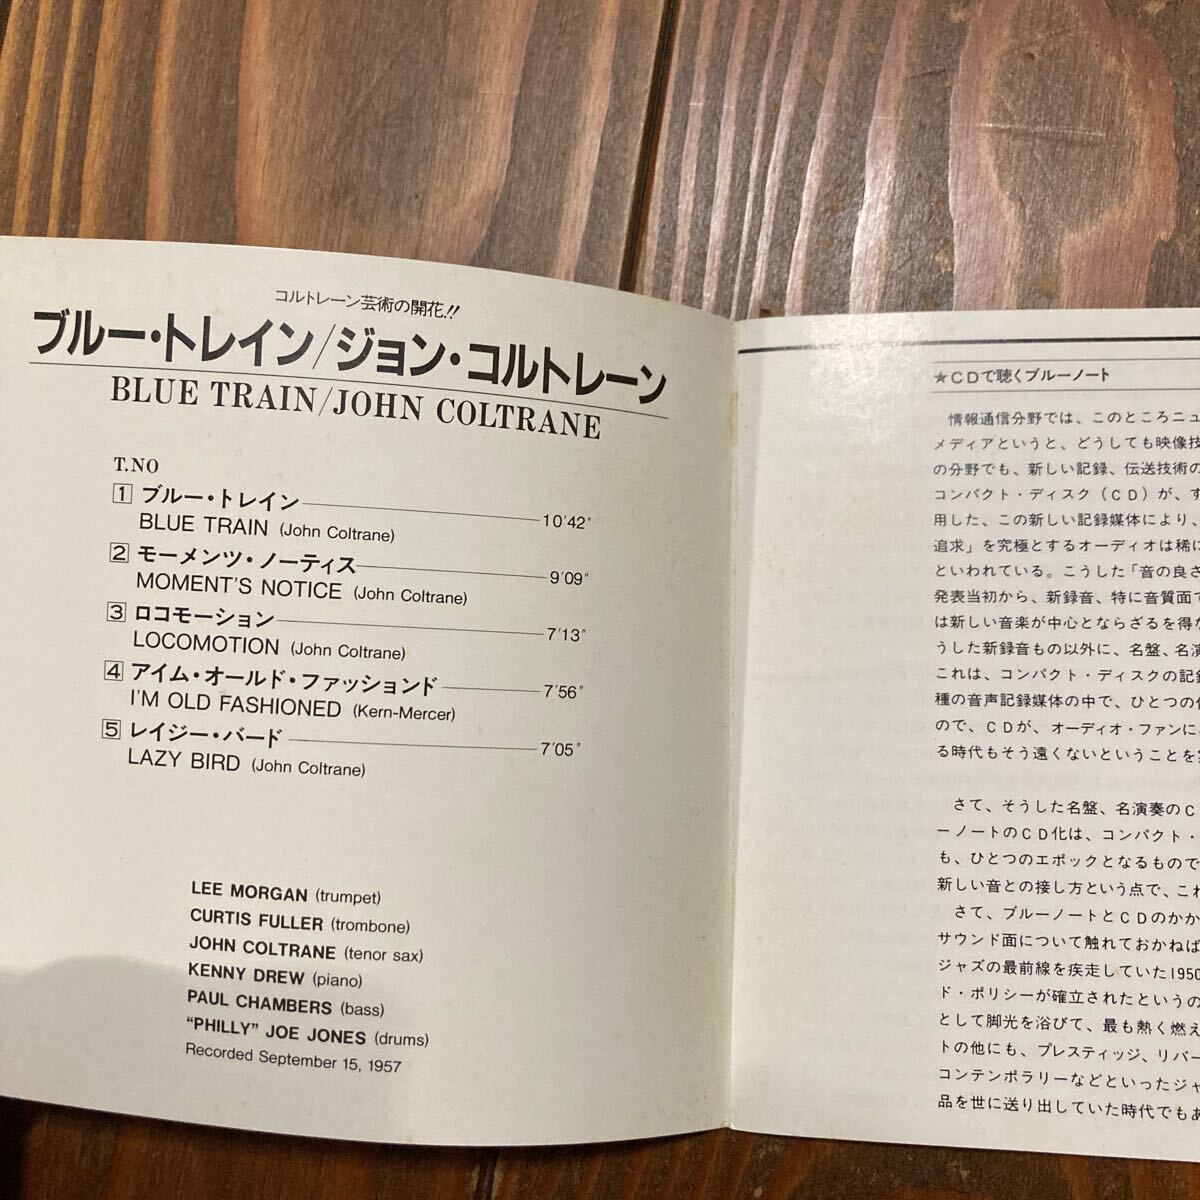 コルトレーン芸術の開花!!
ブルー・トレイン/ジョン・コルトレーン
BLUE TRAIN/JOHN COLTRANE
T.NO
1 ブルー・トレイン 10'42"
BLUE TRAIN (John Coltrane)
2 モーメンツ・ノーティス 9'09"
MOMENT'S NOTICE (John Coltrane)
3 ロコモーション 7'13"
LOCOMOTION (John Coltrane)
4 アイム・オールド・ファッションド 7'56"
I'M OLD FASHIONED (Kern-Mercer)
5 レイジー・バード 7'05"
LAZY BIRD (John Coltrane)
LEE MORGAN (trumpet)
CURTIS FULLER (trombone)
JOHN COLTRANE (tenor sax)
KENNY DREW (piano)
PAUL CHAMBERS (bass)
"PHILLY" JOE JONES (drums)
Recorded September 15, 1957
★CDで聴くブルーノート
情報通信分野では、このところニュ
メディアというと、どうしても映像技
の分野でも、新しい記録、伝送技術の
コンパクト・ディスク(CD)が、す
用した、この新しい記録媒体により、
追求」を究極とするオーディオは稀に
といわれている。こうした「音の良さ
発表当初から、新録音、特に音質面で
は新しい音楽が中心とならざるを得な
うした新録音もの以外に、名盤、名演
これは、コンパクト・ディスクの記録
種の音声記録媒体の中で、ひとつの
ので、CDが、オーディオ・ファンに
る時代もそう遠くないということを
さて、そうした名盤、名演奏のC
ーノートのCD化は、コンパクト・
も、ひとつのエポックとなるもので
新しい音との接し方という点で、これ
さて、ブルーノートとCDのかか
サウンド面について触れておかねば
ジャズの最前線を疾走していた1950
ド・ポリシーが確立されたというの
として脚光を浴びて、最も熱く燃え
トの他にも、プレスティッジ、リバー
コンテンポラリーなどといったジャ
品を世に送り出していた時代でもあ